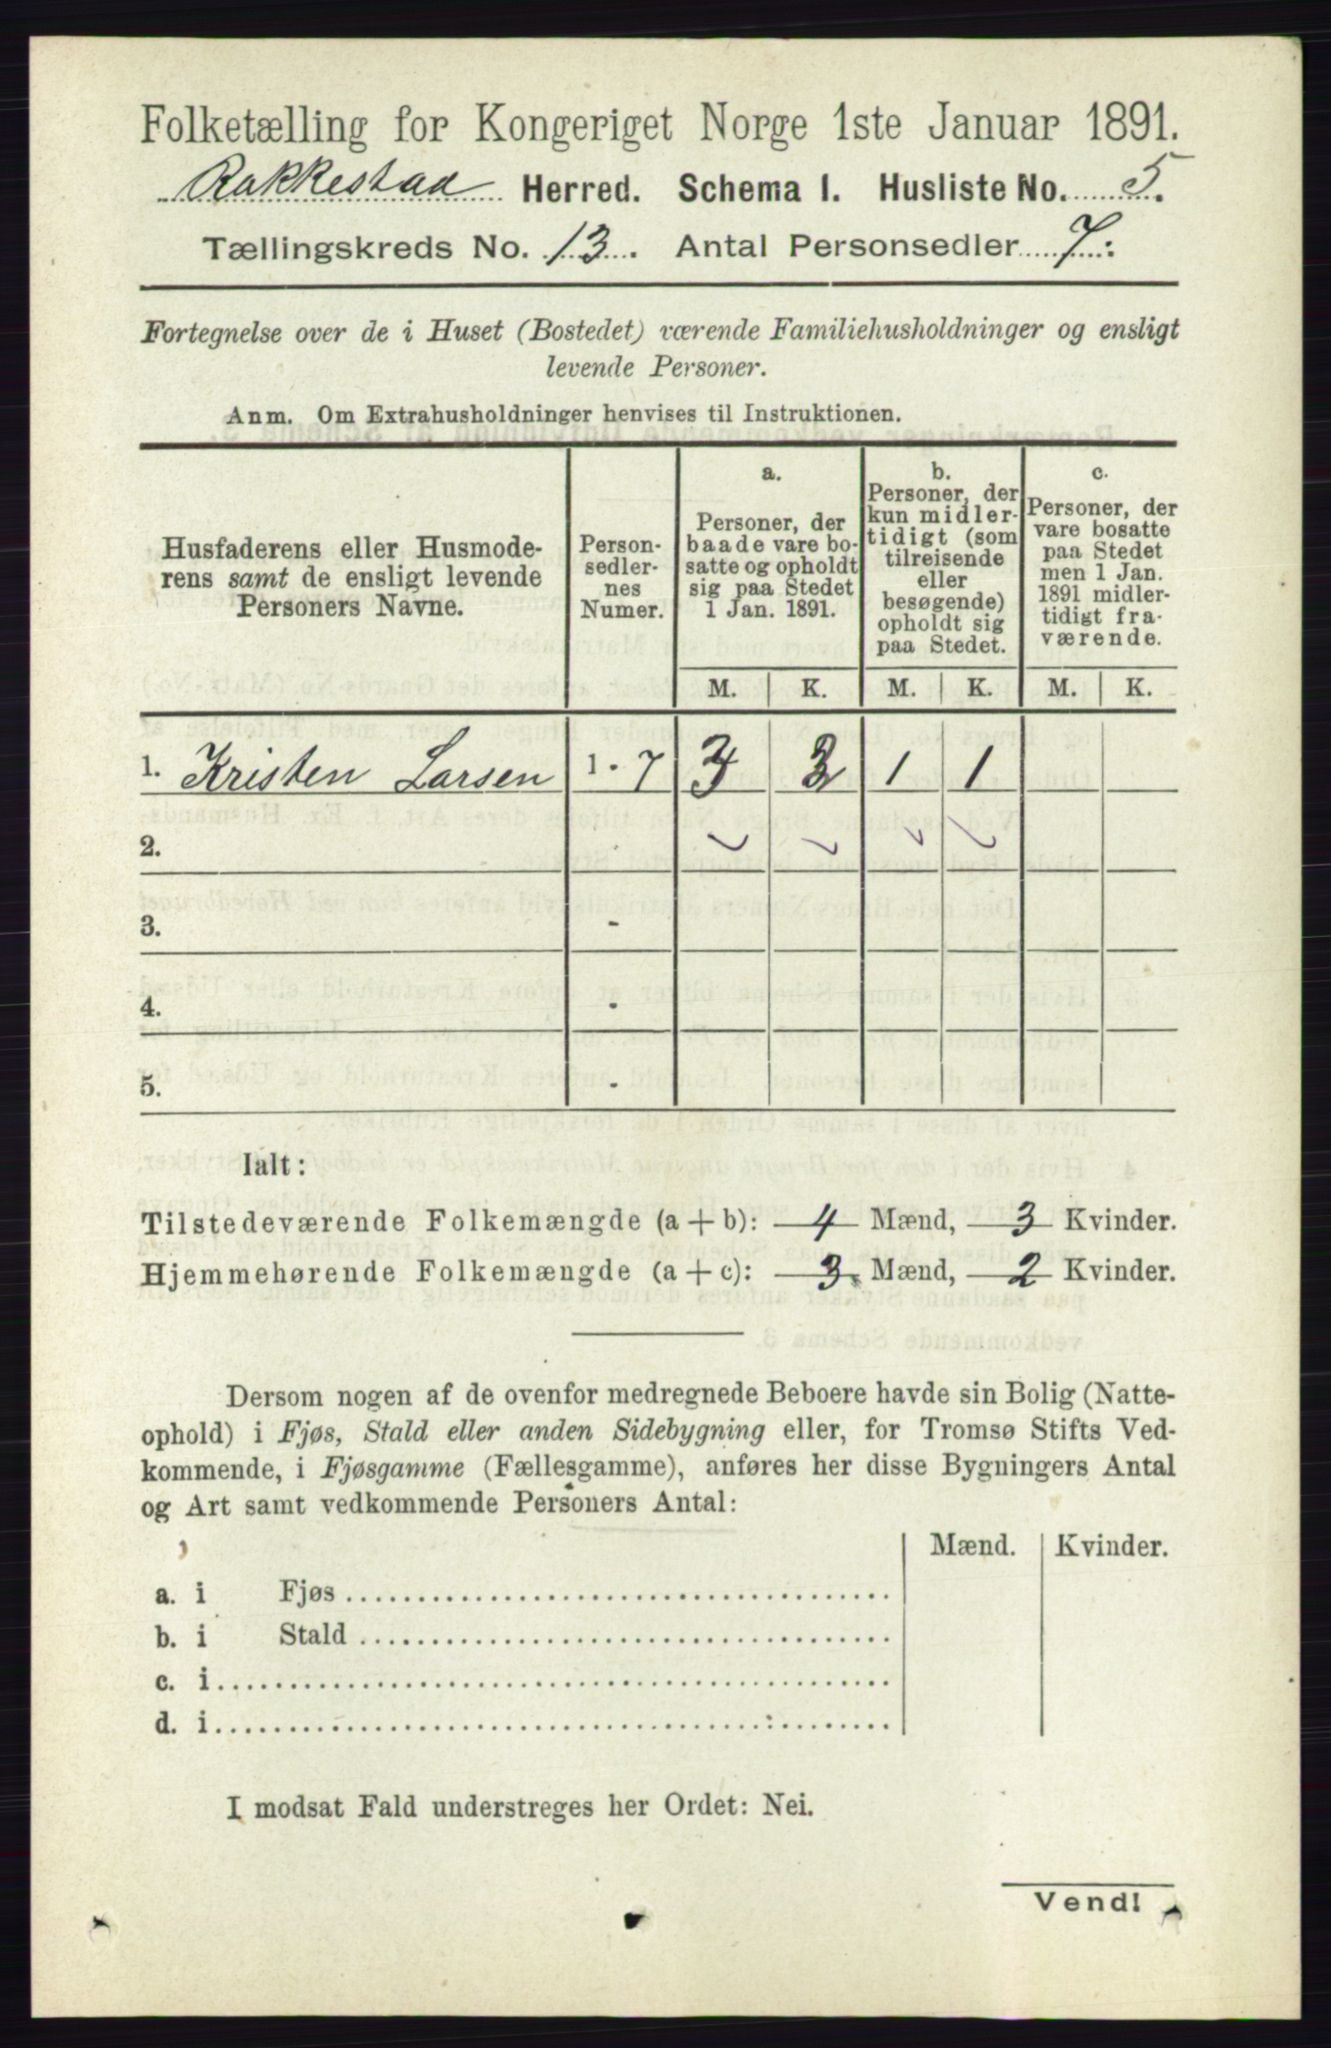 Folketælling for Kongeriget Norge 1ste Januar 1891.
Rakkestad Herred. Schema I. Husliste No. 5.
Tællingskreds No. 13. Antal Personsedler 7.
Fortegnelse over de i Huset (Bostedet) værende Familiehusholdninger og ensligt
levende Personer.
Anm. Om Extrahusholdninger henvises til Instruktionen.
Husfaderens eller Husmode-
rens samt de ensligt levende
Personers Navne.
Person-
sedler-
nes
Numer.
a.
Personer, der
baade vare bo-
satte og opholdt
sig paa Stedet
1 Jan. 1891.
b.
Personer, der
kun midler-
tidigt (som
tilreisende
eller
besøgende)
opholdt sig
paa Stedet.
c.
Personer, der
vare bosatte
paa Stedet
men 1 Jan.
1891 midler-
tidigt fra-
værende.
M. K. M. K. M. K.
1. Kristen Larsen 1 - 7 3 2 1 1
2.
3. -
4. -
5. -
Ialt:
Tilstedeværende Folkemængde (a + b): 4 Mænd, 3 Kvinder.
Hjemmehørende Folkemængde (a + c): 3 Mænd, 2 Kvinder.
Dersom nogen af de ovenfor medregnede Beboere havde sin Bolig (Natte-
ophold) i Fjøs, Stald eller anden Sidebygning eller, for Tromsø Stifts Ved-
kommende, i Fjøsgamme (Fællesgamme), anføres her disse Bygningers Antal
og Art samt vedkommende Personers Antal:
Mænd. Kvinder.
a. i Fjøs
b. i Stald
c. i
d. i
I modsat Fald understreges her Ordet: Nei.
Vend!